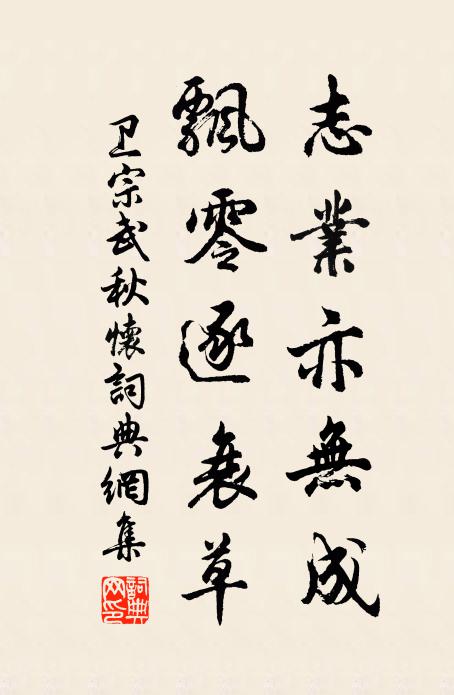 志業亦無成
飄零逐衰草
卫宗武秋懷詞典網集
詞典網印